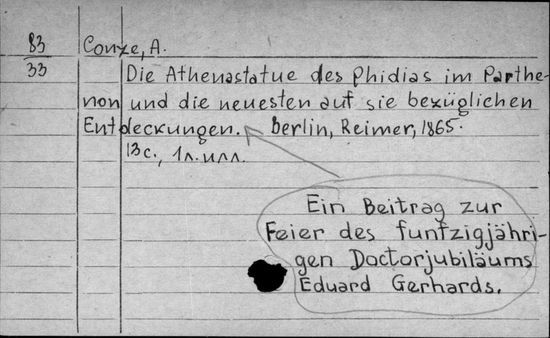 83
33
Conze, A.
Die Athenastatue des Phidias im Parthe-
non und die neuesten auf sie bezüglichen
Entdeckungen. Berlin, Reimer, 1865.
13 с., 1 л. илл.
Ein Beitrag zur
Feier des funfzigjähri-
gen Doctorjubiläums
Eduard Gerhards.